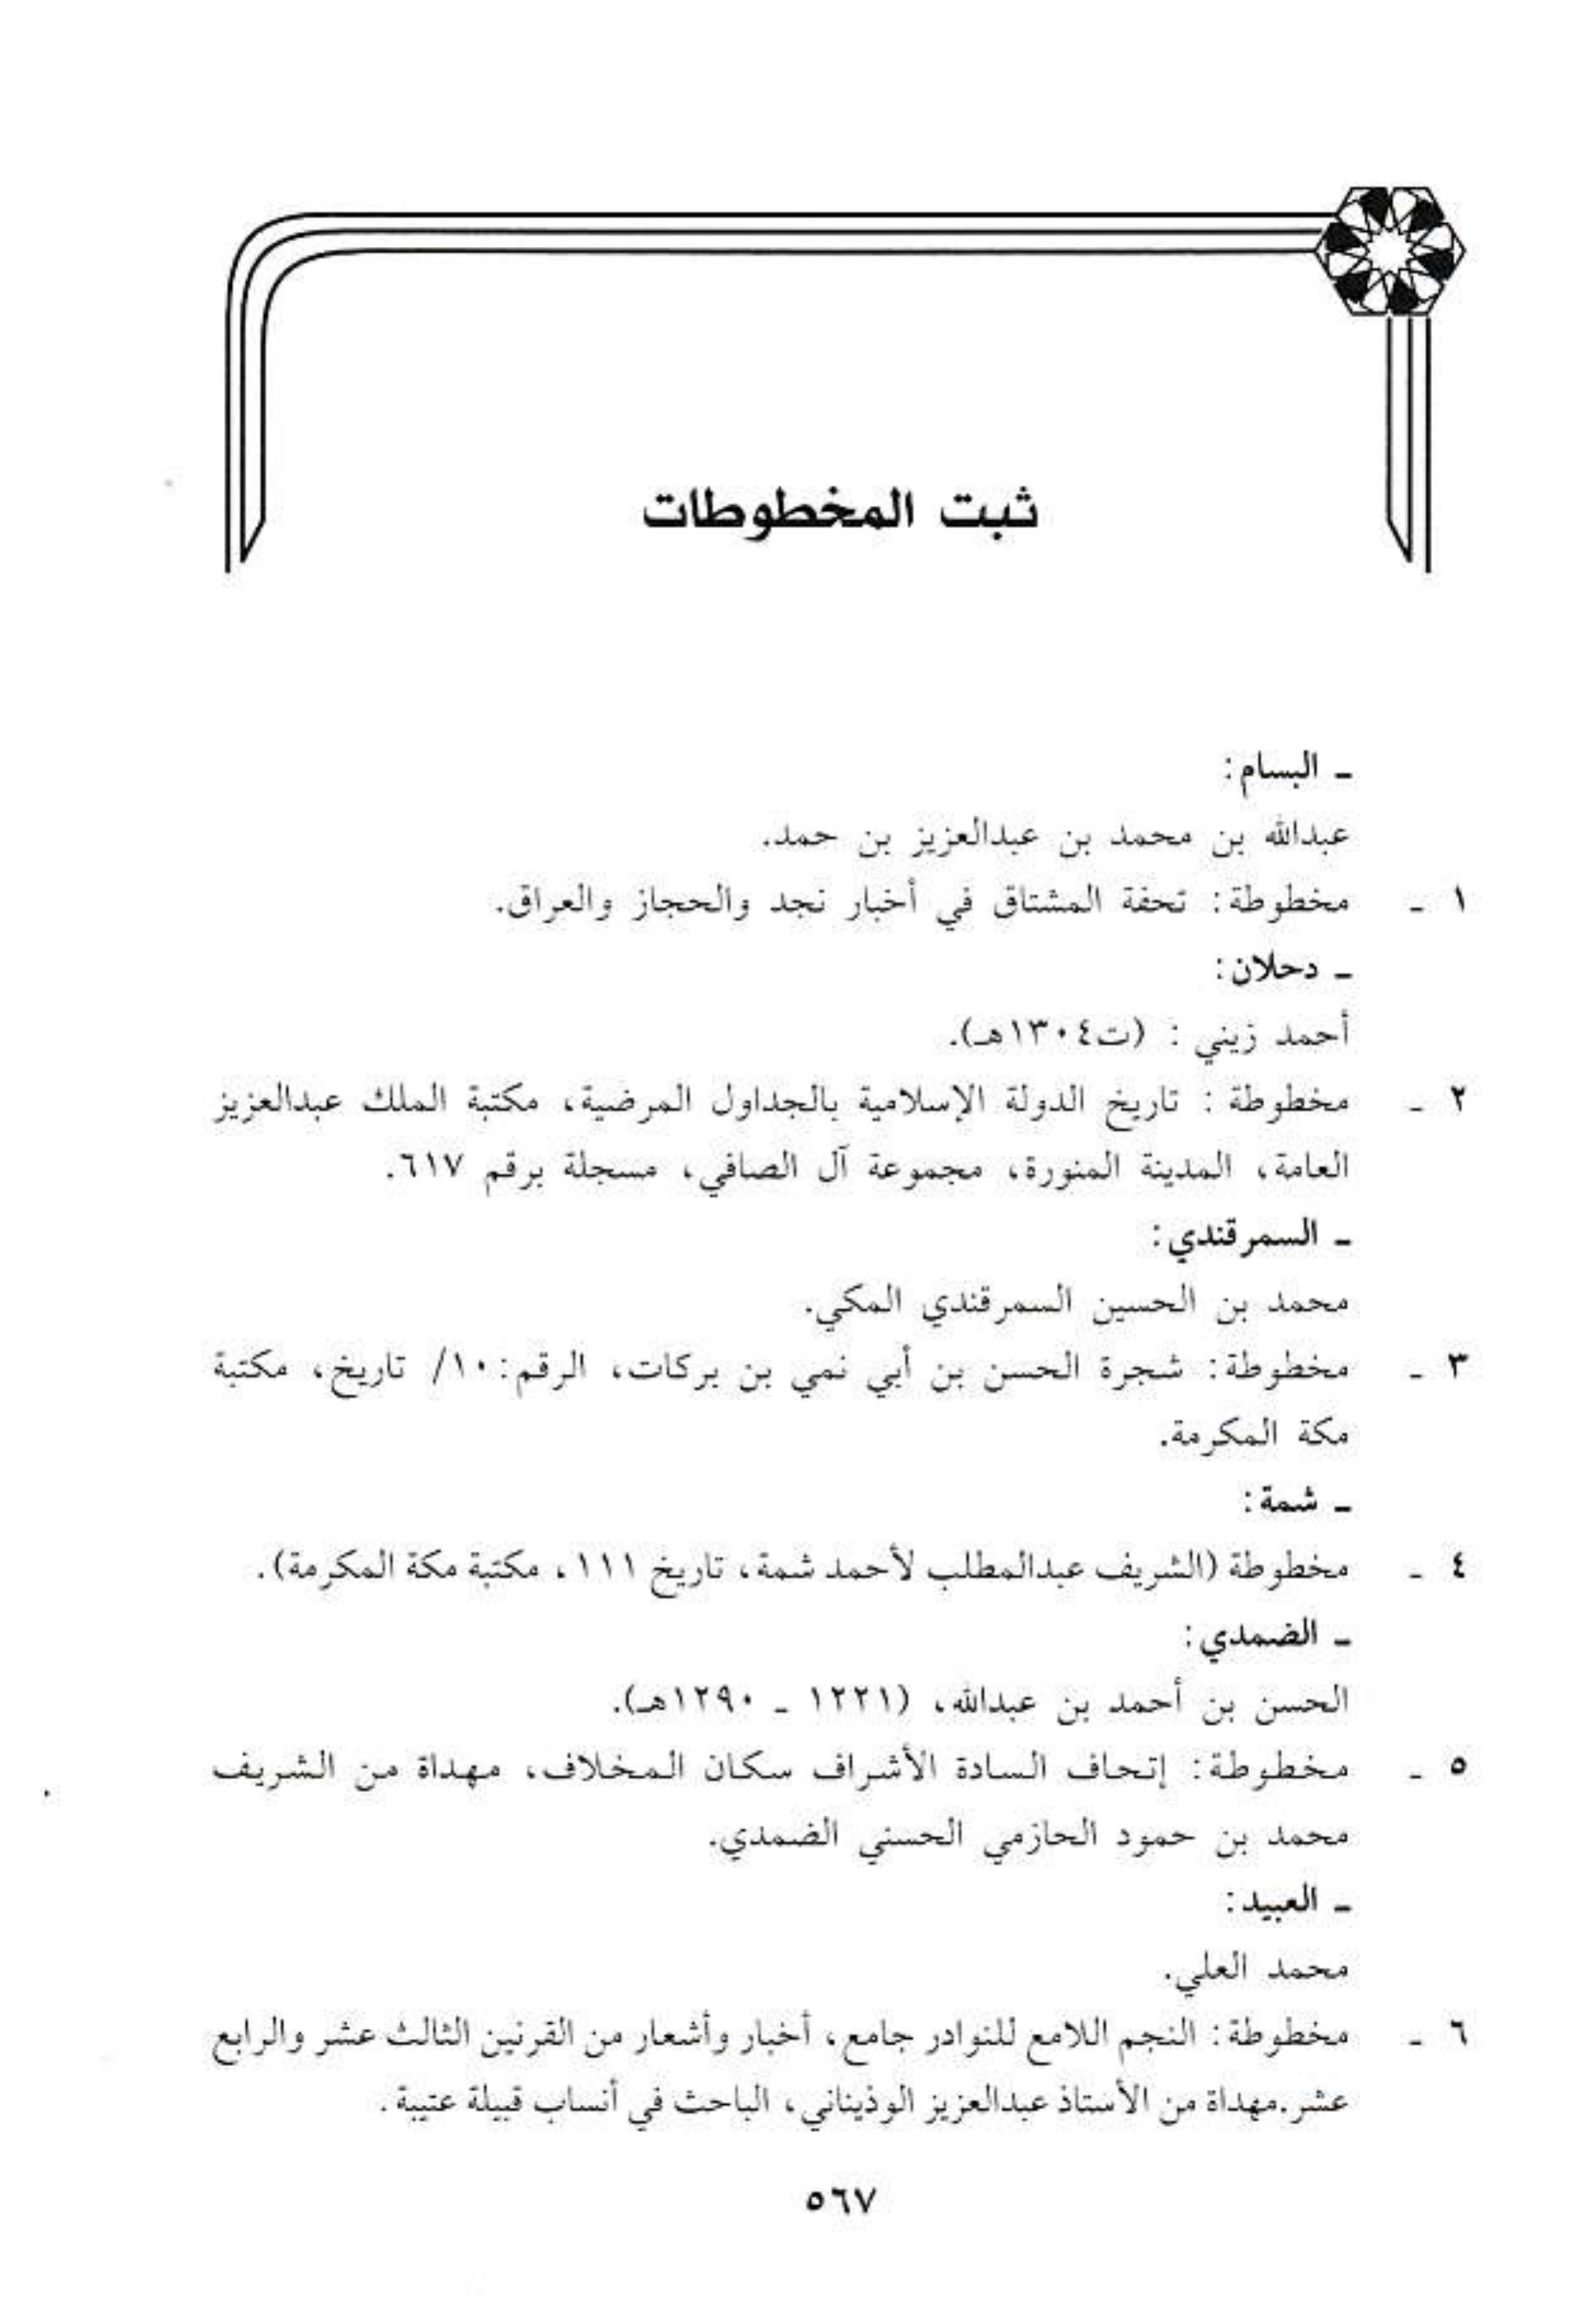 ثبت المخطوطات
ـ البسام:
عبدالله بن محمد بن عبدالعزيز بن حمد.
١ ـ مخطوطة: تحفة المشتاق في أخبار نجد والحجاز والعراق.
ـ دحلان:
أحمد زيني : (ت١٣٠٤هـ).
٢ ـ مخطوطة : تاريخ الدولة الإسلامية بالجداول المرضية، مكتبة الملك عبدالعزيز
العامة، المدينة المنورة، مجموعة آل الصافي، مسجلة برقم ٦١٧.
ـ السمرقندي:
محمد بن الحسين السمرقندي المكي.
٣ ـ مخطوطة: شجرة الحسن بن أبي نمي بن بركات، الرقم: ١٠/ تاريخ، مكتبة
مكة المكرمة.
ـ شمة:
٤ ـ مخطوطة (الشريف عبدالمطلب لأحمد شمة، تاريخ ١١١، مكتبة مكة المكرمة).
ـ الضمدي:
الحسن بن أحمد بن عبدالله، (١٢٢١ ـ ١٢٩٠هـ).
٥ ـ مخطوطة: إتحاف السادة الأشراف سكان المخلاف، مهداة من الشريف
محمد بن حمود الحازمي الحسني الضمدي.
ـ العبيد:
محمد العلي.
٦ ـ مخطوطة: النجم اللامع للنوادر جامع، أخبار وأشعار من القرنين الثالث عشر والرابع
عشر.مهداة من الأستاذ عبدالعزيز الوذيناني، الباحث في أنساب قبيلة عتيبة.
٥٦٧